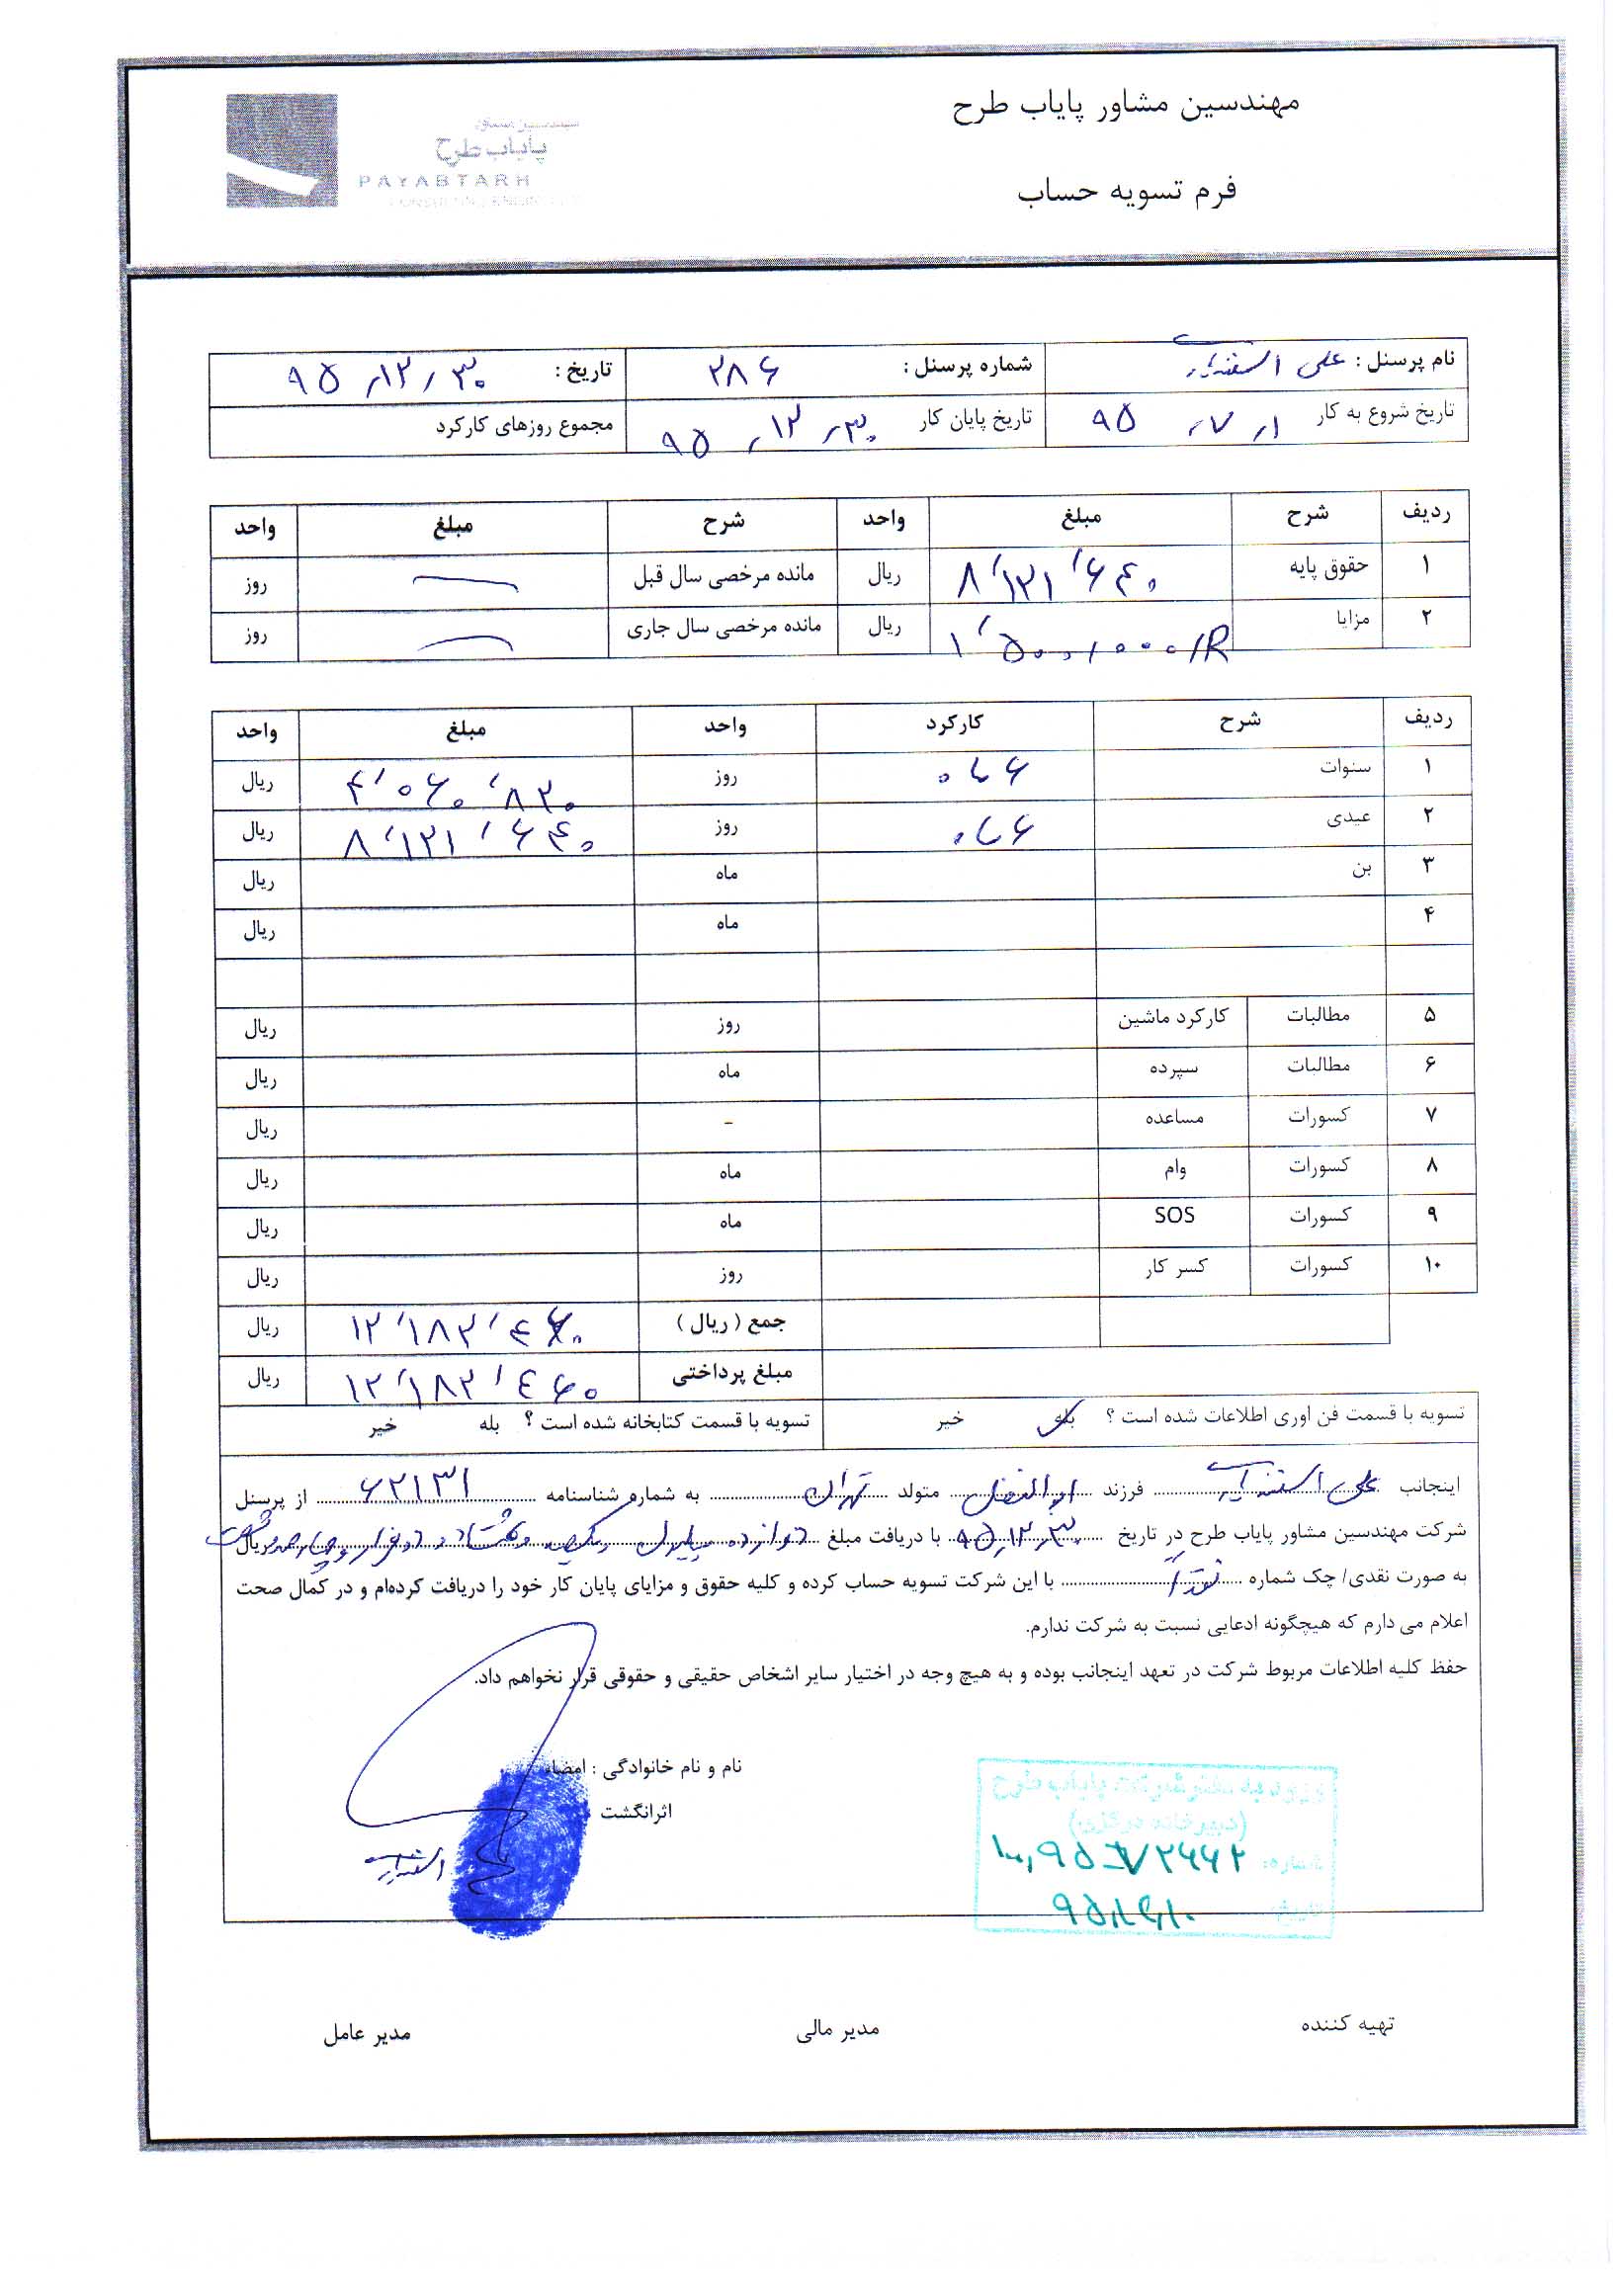 مهندسین مشاور پایاب طرح
فرم تسویه حساب
پایاب طرح
PAYABTARH
نام پرسنل : علی شماره پرسنل : ۲۸۶ تاریخ : ۹۵/۱۲/۳۰
تاریخ شروع به کار ۹۵/۷/۱ تاریخ پایان کار ۹۵/۱۲/۳۰ مجموع روزهای کارکرد
ردیف شرح مبلغ واحد شرح مبلغ واحد
۱ حقوق پایه ۸٬۱۲۱٬۶۴۰ ریال مانده مرخصی سال قبل — روز
۲ مزایا ۱٬۵۰۰٬۰۰۰/R ریال مانده مرخصی سال جاری — روز
ردیف شرح کارکرد واحد مبلغ واحد
۱ سنوات ۶ ماه روز ۴٬۰۶۰٬۸۲۰ ریال
۲ عیدی ۶ ماه روز ۸٬۱۲۱٬۶۴۰ ریال
۳ بن ماه ریال
۴ ماه ریال
۵ مطالبات کارکرد ماشین روز ریال
۶ مطالبات سپرده ماه ریال
۷ کسورات مساعده – ریال
۸ کسورات وام ماه ریال
۹ کسورات SOS ماه ریال
۱۰ کسورات کسر کار روز ریال
جمع ( ریال ) ۱۲٬۱۸۲٬۴۶۰ ریال
مبلغ پرداختی ۱۲٬۱۸۲٬۴۶۰ ریال
تسویه با قسمت فن اوری اطلاعات شده است ؟ بله خیر تسویه با قسمت کتابخانه شده است ؟ بله خیر
اینجانب علی فرزند ابوالفضل متولد تهران به شماره شناسنامه ۶۲۱۳۱ از پرسنل
شرکت مهندسین مشاور پایاب طرح در تاریخ ۹۵/۱۲/۳۰ با دریافت مبلغ دوازده میلیون و یکصد و هشتاد و دو هزار و چهارصد و شصت ریال
به صورت نقدی/ چک شماره نقداً با این شرکت تسویه حساب کرده و کلیه حقوق و مزایای پایان کار خود را دریافت کرده‌ام و در کمال صحت
اعلام می دارم که هیچگونه ادعایی نسبت به شرکت ندارم.
حفظ کلیه اطلاعات مربوط شرکت در تعهد اینجانب بوده و به هیچ وجه در اختیار سایر اشخاص حقیقی و حقوقی قرار نخواهم داد.
نام و نام خانوادگی : امضاء
اثرانگشت
تهیه کننده مدیر مالی مدیر عامل